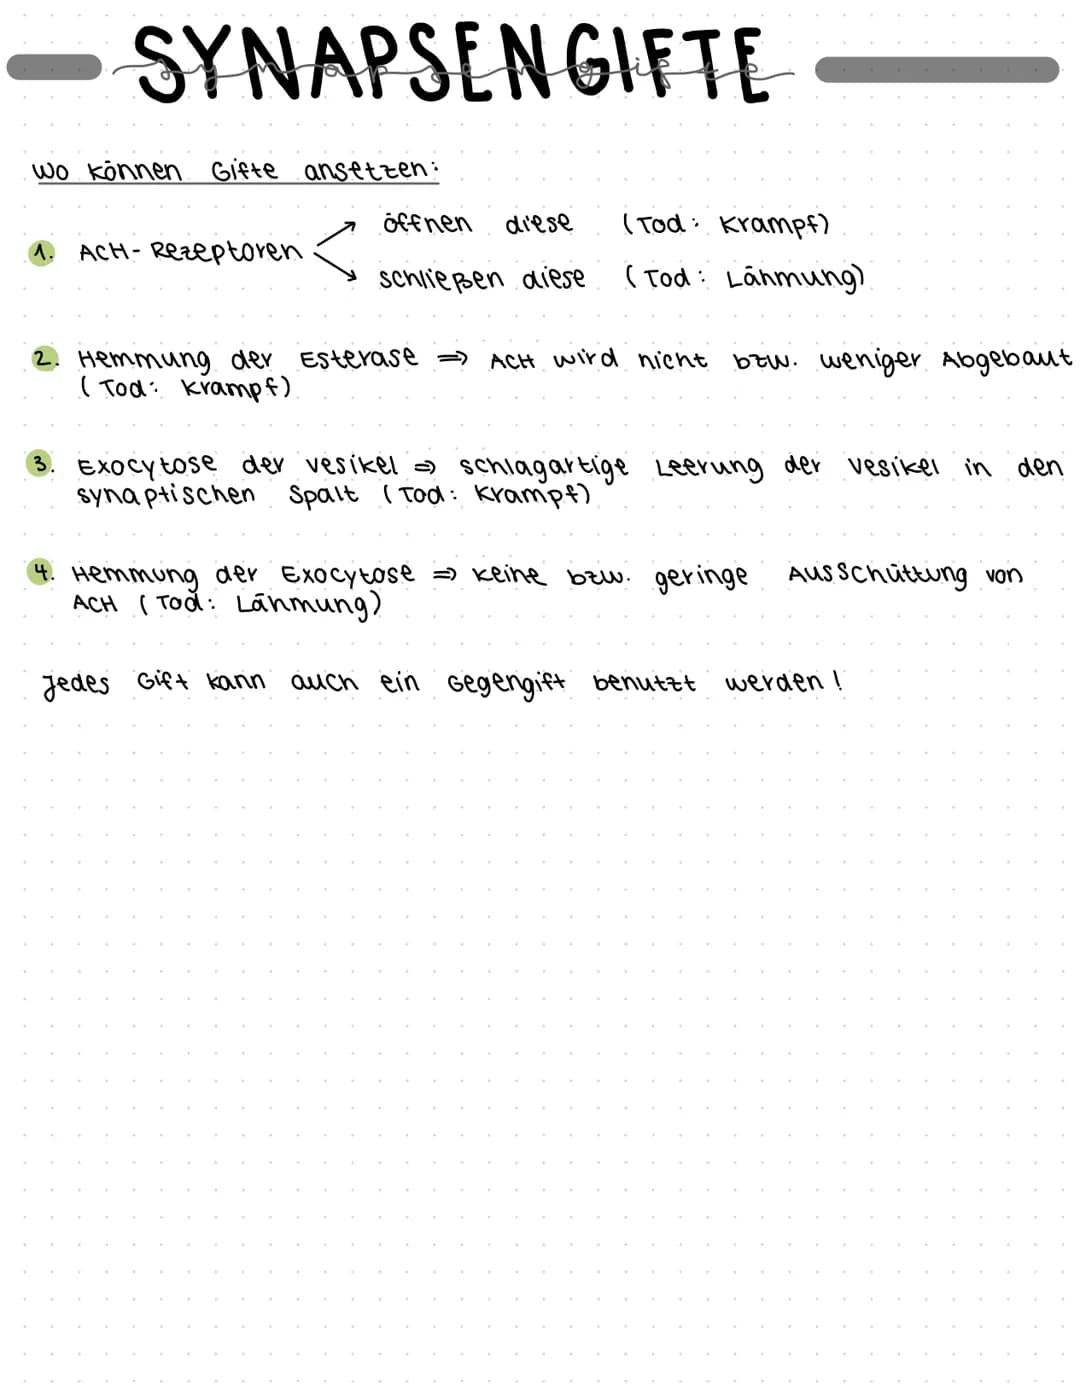 SYNAPSENGIFTE
synapsengifte
Wo können Gifte ansetzen:
1. ACH-Rezeptoren
öffnen diese (Tod: Krampf)
schließen diese (Tod: Lähmung)
2. Hemmung der Esterase => ACH wird nicht bzw. weniger Abgebaut
(Tod: Krampf)
3. Exocytose der Vesikel => schlagartige Leerung der Vesikel in den
synaptischen Spalt (Tod: Krampf)
4. Hemmung der Exocytose => keine bzw. geringe Ausschüttung von
ACH (Tod: Lähmung)
Jedes Gift kann auch ein Gegengift benutzt werden!